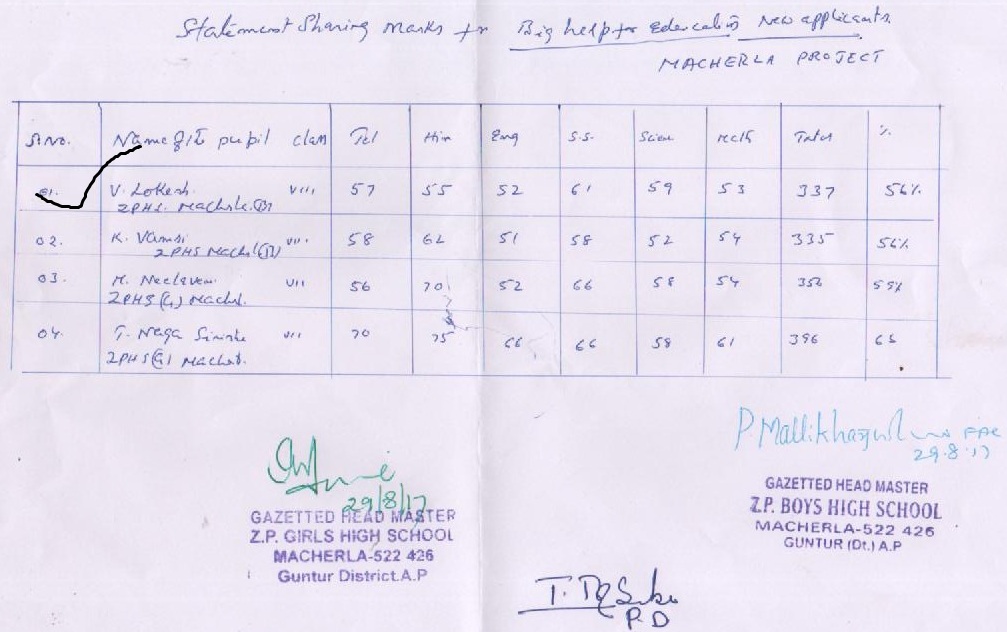 Statement Sharing marks for Big help for Education New applicants
MACHERLA PROJECT
Sl.No. Name of the pupil class Tel Hin Eng S.S. Scien Math Total %
01. V. Lokesh VIII 57 55 52 61 59 53 337 56%
ZPHS. Macherla (B)
02. K. Vamsi VII 58 62 51 58 52 54 335 56%
ZPHS Machrl (B)
03. M. Neelaveni VII 56 70 52 66 58 54 356 59%
ZPHS (G) Machrl.
04. T. Naga VII 70 75 66 66 58 61 396 65
ZPHS (G) Machrl.
29/8/17
GAZETTED HEAD MASTER
Z.P. GIRLS HIGH SCHOOL
MACHERLA-522 426
Guntur District.A.P
P Mallikharjuna FAC
29.8.17
GAZETTED HEAD MASTER
Z.P. BOYS HIGH SCHOOL
MACHERLA-522 426
GUNTUR (Dt.) A.P
P.D